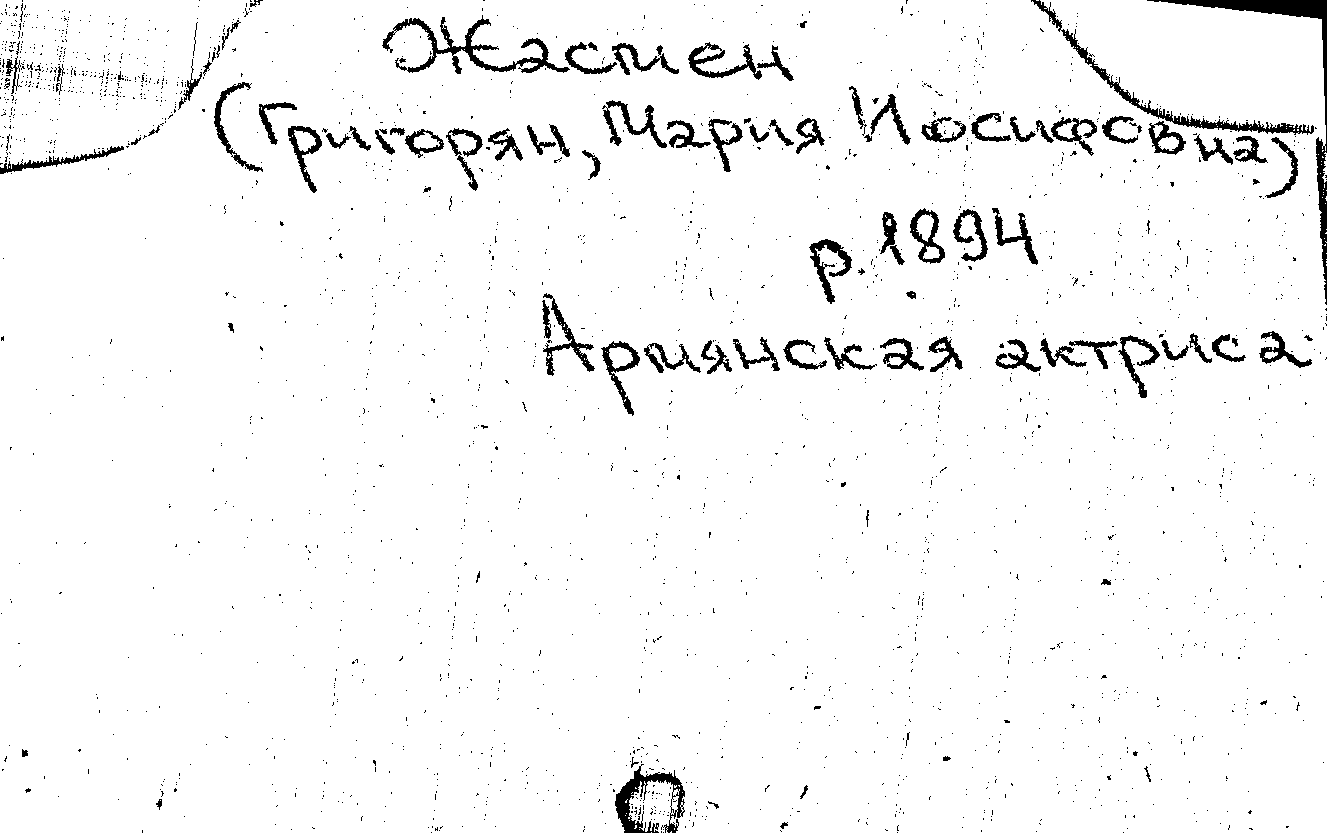 Жасмен
(Григорян, Мария Иосифовна)
р. 1894
Армянская актриса